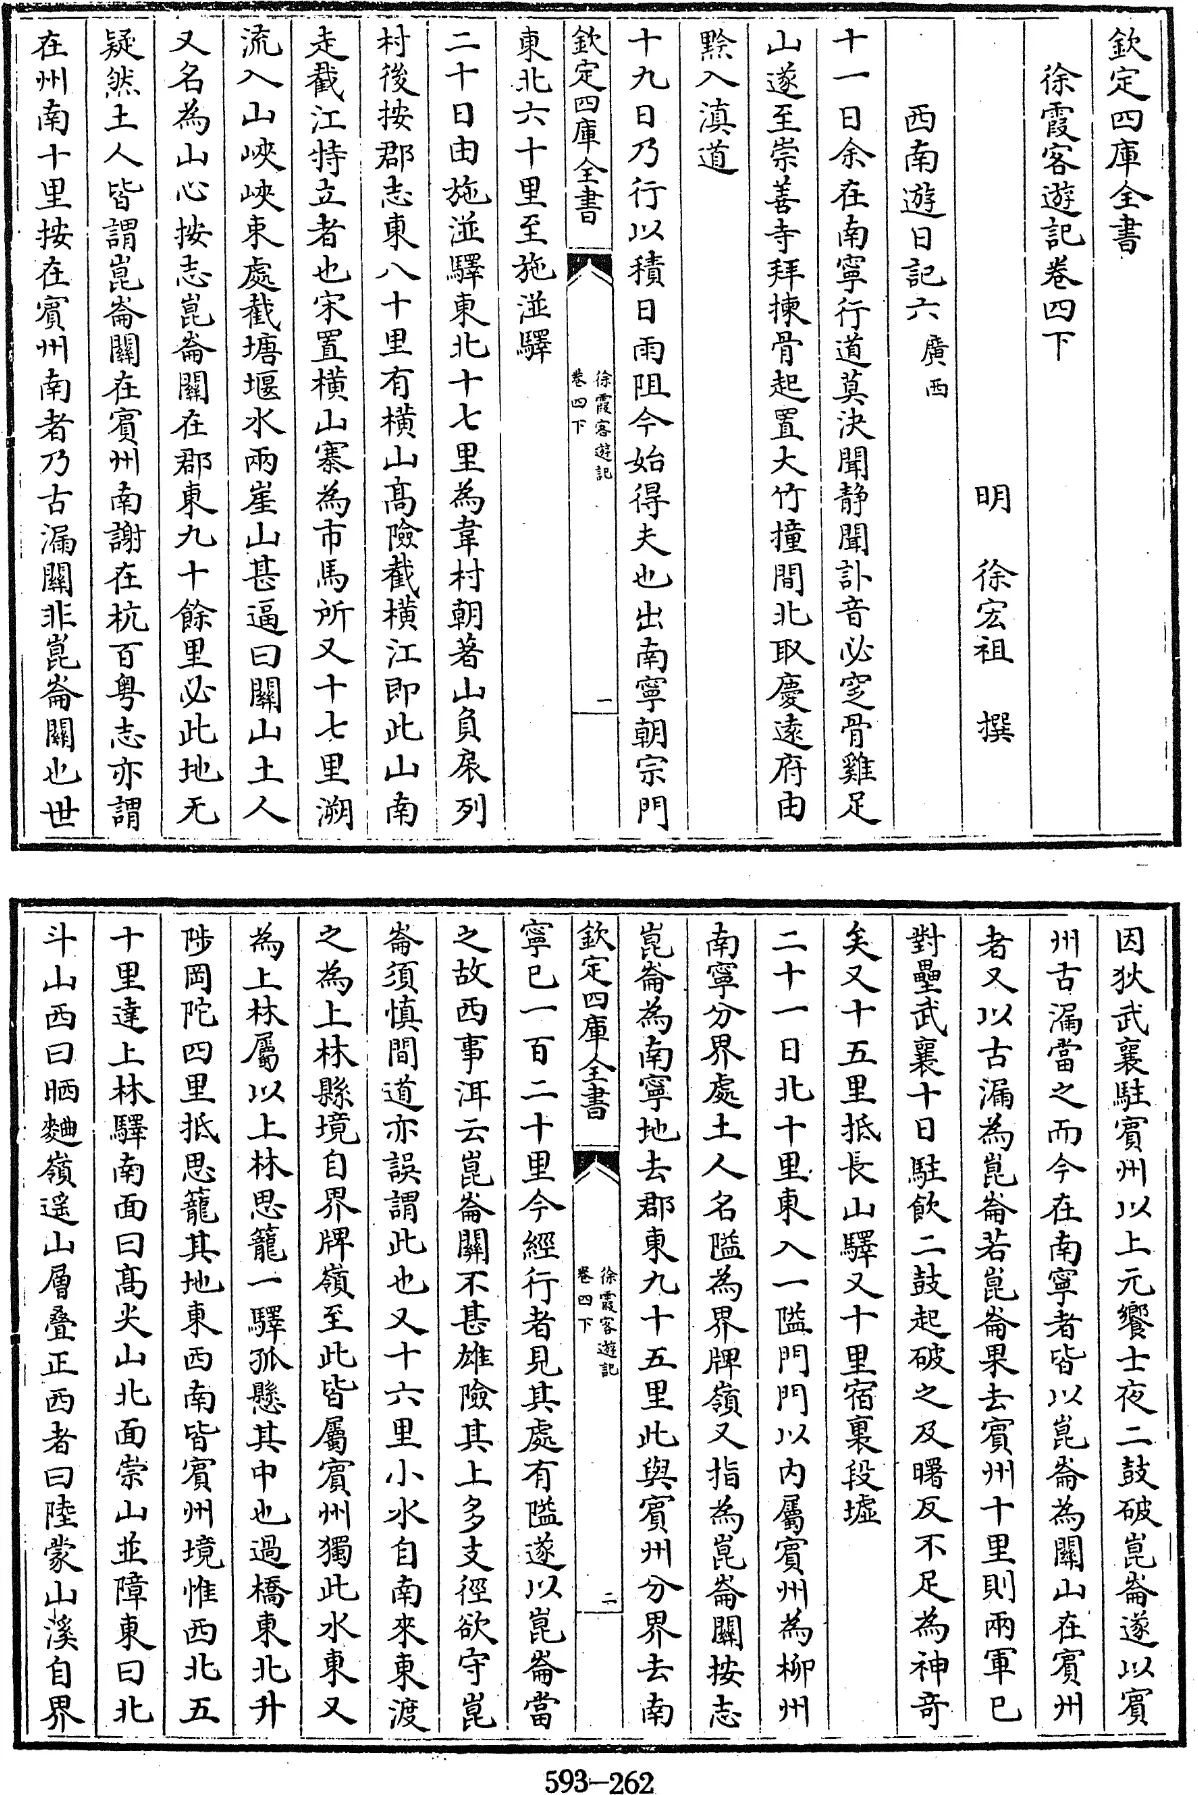 欽定四庫全書
徐霞客遊記卷四下
明 徐宏祖 撰
西南遊日記六 廣西
十一日余在南寧行道莫決聞静聞訃音必窆骨雞足
山遂至崇善寺拜揀骨起置大竹撞間北取慶遠府由
黔入滇道
十九日乃行以積日雨阻今始得夫也出南寧朝宗門
欽定四庫全書
徐霞客遊記
卷四下
一
東北六十里至施湴驛
二十日由施湴驛東北十七里為韋村朝著山負扆列
村後按郡志東八十里有橫山髙險截橫江即此山南
走截江特立者也宋置橫山寨為市馬所又十七里溯
流入山峽峽東處截塘堰水兩崖山甚逼曰關山土人
又名為山心按志崑崙關在郡東九十餘里必此地无
疑然土人皆謂崑崙關在賓州南謝在杭百粤志亦謂
在州南十里按在賓州南者乃古漏關非崑崙關也世
因狄武襄駐賓州以上元饗士夜二鼓破崑崙遂以賓
州古漏當之而今在南寧者皆以崑崙為關山在賓州
者又以古漏為崑崙若崑崙果去賓州十里則兩軍已
對壘武襄十日駐飲二鼓起破之及曙反不足為神奇
矣又十五里抵長山驛又十里宿裏段墟
二十一日北十里東入一隘門門以内屬賓州為柳州
南寧分界處土人名隘為界牌嶺又指為崑崙關按志
崑崙為南寧地去郡東九十五里此與賓州分界去南
欽定四庫全書
徐霞客遊記
卷四下
二
寧已一百二十里今經行者見其處有隘遂以崑崙當
之故西事洱云崑崙關不甚雄險其上多支徑欲守崑
崙須慎間道亦誤謂此也又十六里小水自南來東渡
之為上林縣境自界牌嶺至此皆屬賓州獨此水東又
為上林屬以上林思籠一驛孤懸其中也過橋東北升
陟岡陀四里抵思籠其地東西南皆賓州境惟西北五
十里達上林驛南面曰髙尖山北面崇山並障東曰北
斗山西曰晒麯嶺遥山層叠正西者曰陸蒙山溪自界
593-262